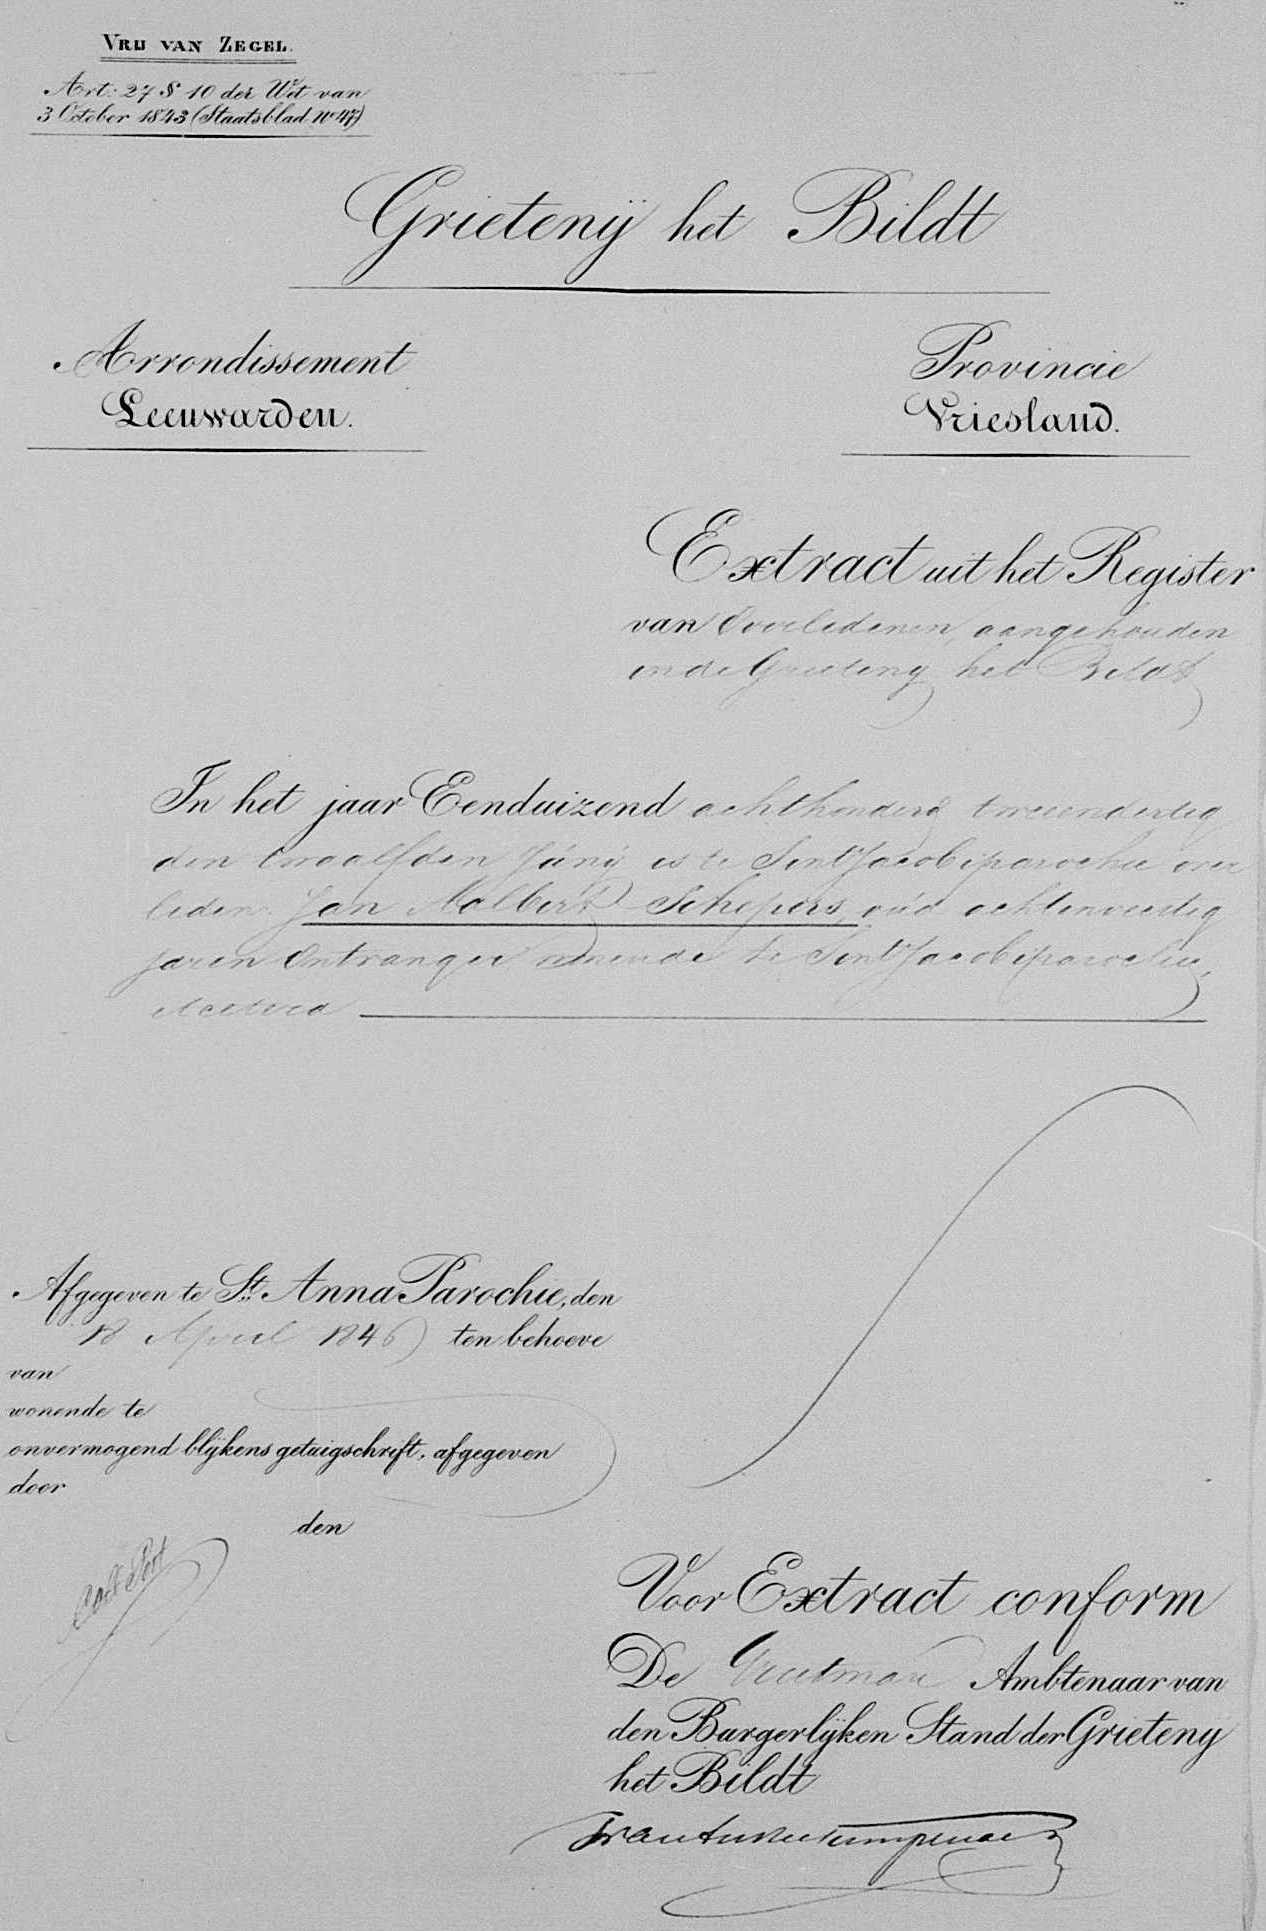 VRIJ VAN ZEGEL.
Art: 27 § 10 der Wet van
3 October 1843 (Staatsblad No 47)
Grietenij het Bildt
Arrondissement
Leeuwarden.
Provincie
Vriesland.
Extract uit het Register
van Overledenen, aangehouden
in de Grietenij het Bildt
In het jaar Eenduizend achthonderd tweeendertig
den twaalfden Junij is te Sint Jacobiparochie over
leden: Jan Schepers, oud achtenveertig
jaren Ontvanger wonende te Sint Jacobiparochie,
etcetera
Afgegeven te St. Anna Parochie, den
18 April 1846 ten behoeve
van
wonende te
onvermogend blijkens getuigschrift, afgegeven
door
den
Voor Extract conform
De Grietman Ambtenaar van
den Burgerlijken Stand der Grietenij
het Bildt